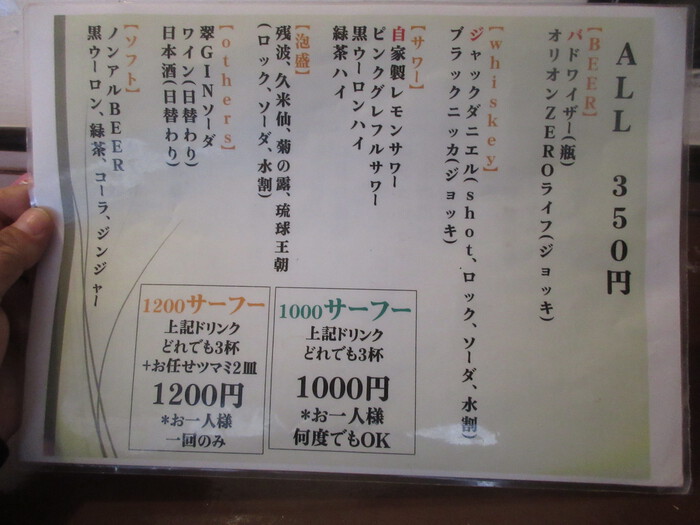 ALL 350円
【BEER】
バドワイザー(瓶)
オリオンZEROライフ(ジョッキ)
【whiskey】
ジャックダニエル(shot、ロック、ソーダ、水割)
ブラックニッカ(ジョッキ)
【サワー】
自家製レモンサワー
ピンクグレフルサワー
黒ウーロンハイ
緑茶ハイ
【泡盛】
残波、久米仙、菊の露、琉球王朝
(ロック、ソーダ、水割)
【others】
翠GINソーダ
ワイン(日替わり)
日本酒(日替わり)
【ソフト】
ノンアルBEER
黒ウーロン、緑茶、コーラ、ジンジャー
1000サーフー
上記ドリンク
どれでも3杯
1000円
*お一人様
何度でもOK
1200サーフー
上記ドリンク
どれでも3杯
+お任せツマミ2皿
1200円
*お一人様
一回のみ